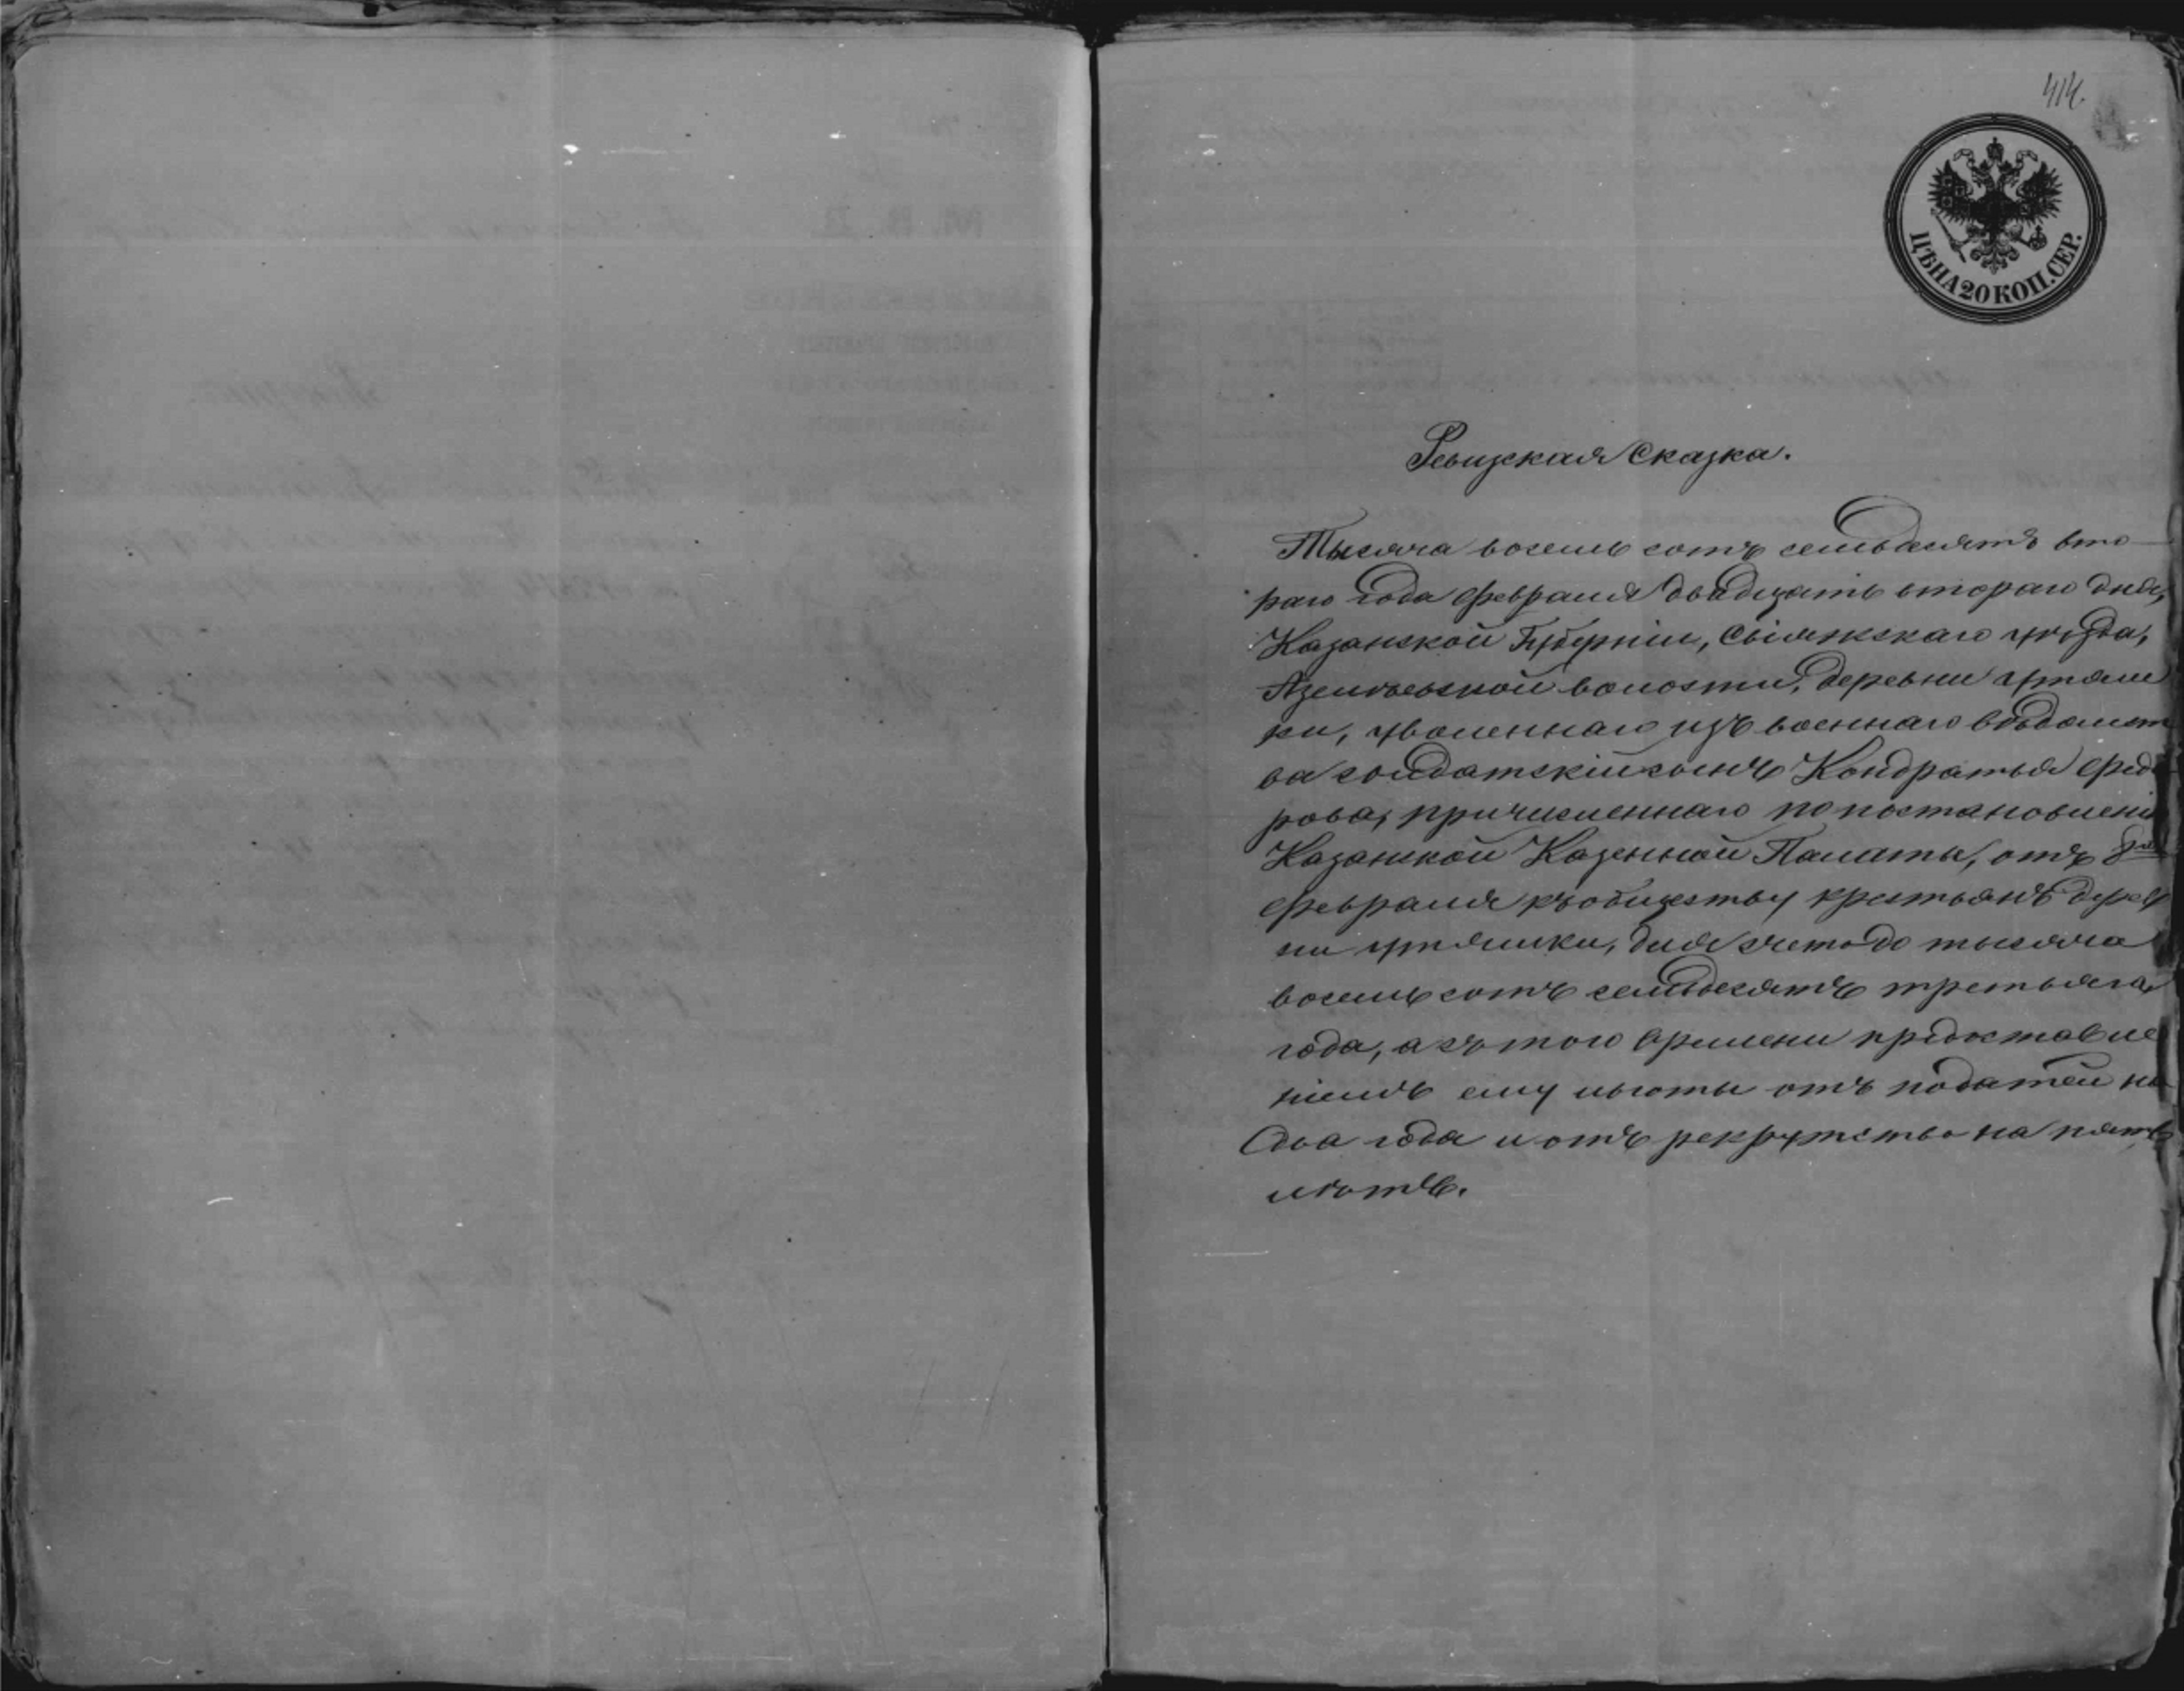 414.
ЦѢНА 20 КОП. СЕР.
Ревизская Сказка.
Тысяча восемь сотъ семьдесятъ вто-
раго года февраля двадцать втораго дня,
Казанской Губерніи, Свіяжскаго уѣзда,
Азелѣевской волости, деревни Утяш
ки, уволеннаго изъ военнаго вѣдомст
ва солдатскій сынъ Кондратья Федо
рова, причисленнаго по постановленію
Казанской Казенной Палаты, отъ
февраля къ обществу крестьянъ дерев
ни Утяшки, для счета до тысяча
восемь сотъ семьдесятъ третьяго
года, а съ того времени предоставле
ніемъ ему льготы отъ податей на
два года и отъ рекрутства на пять
лѣтъ.